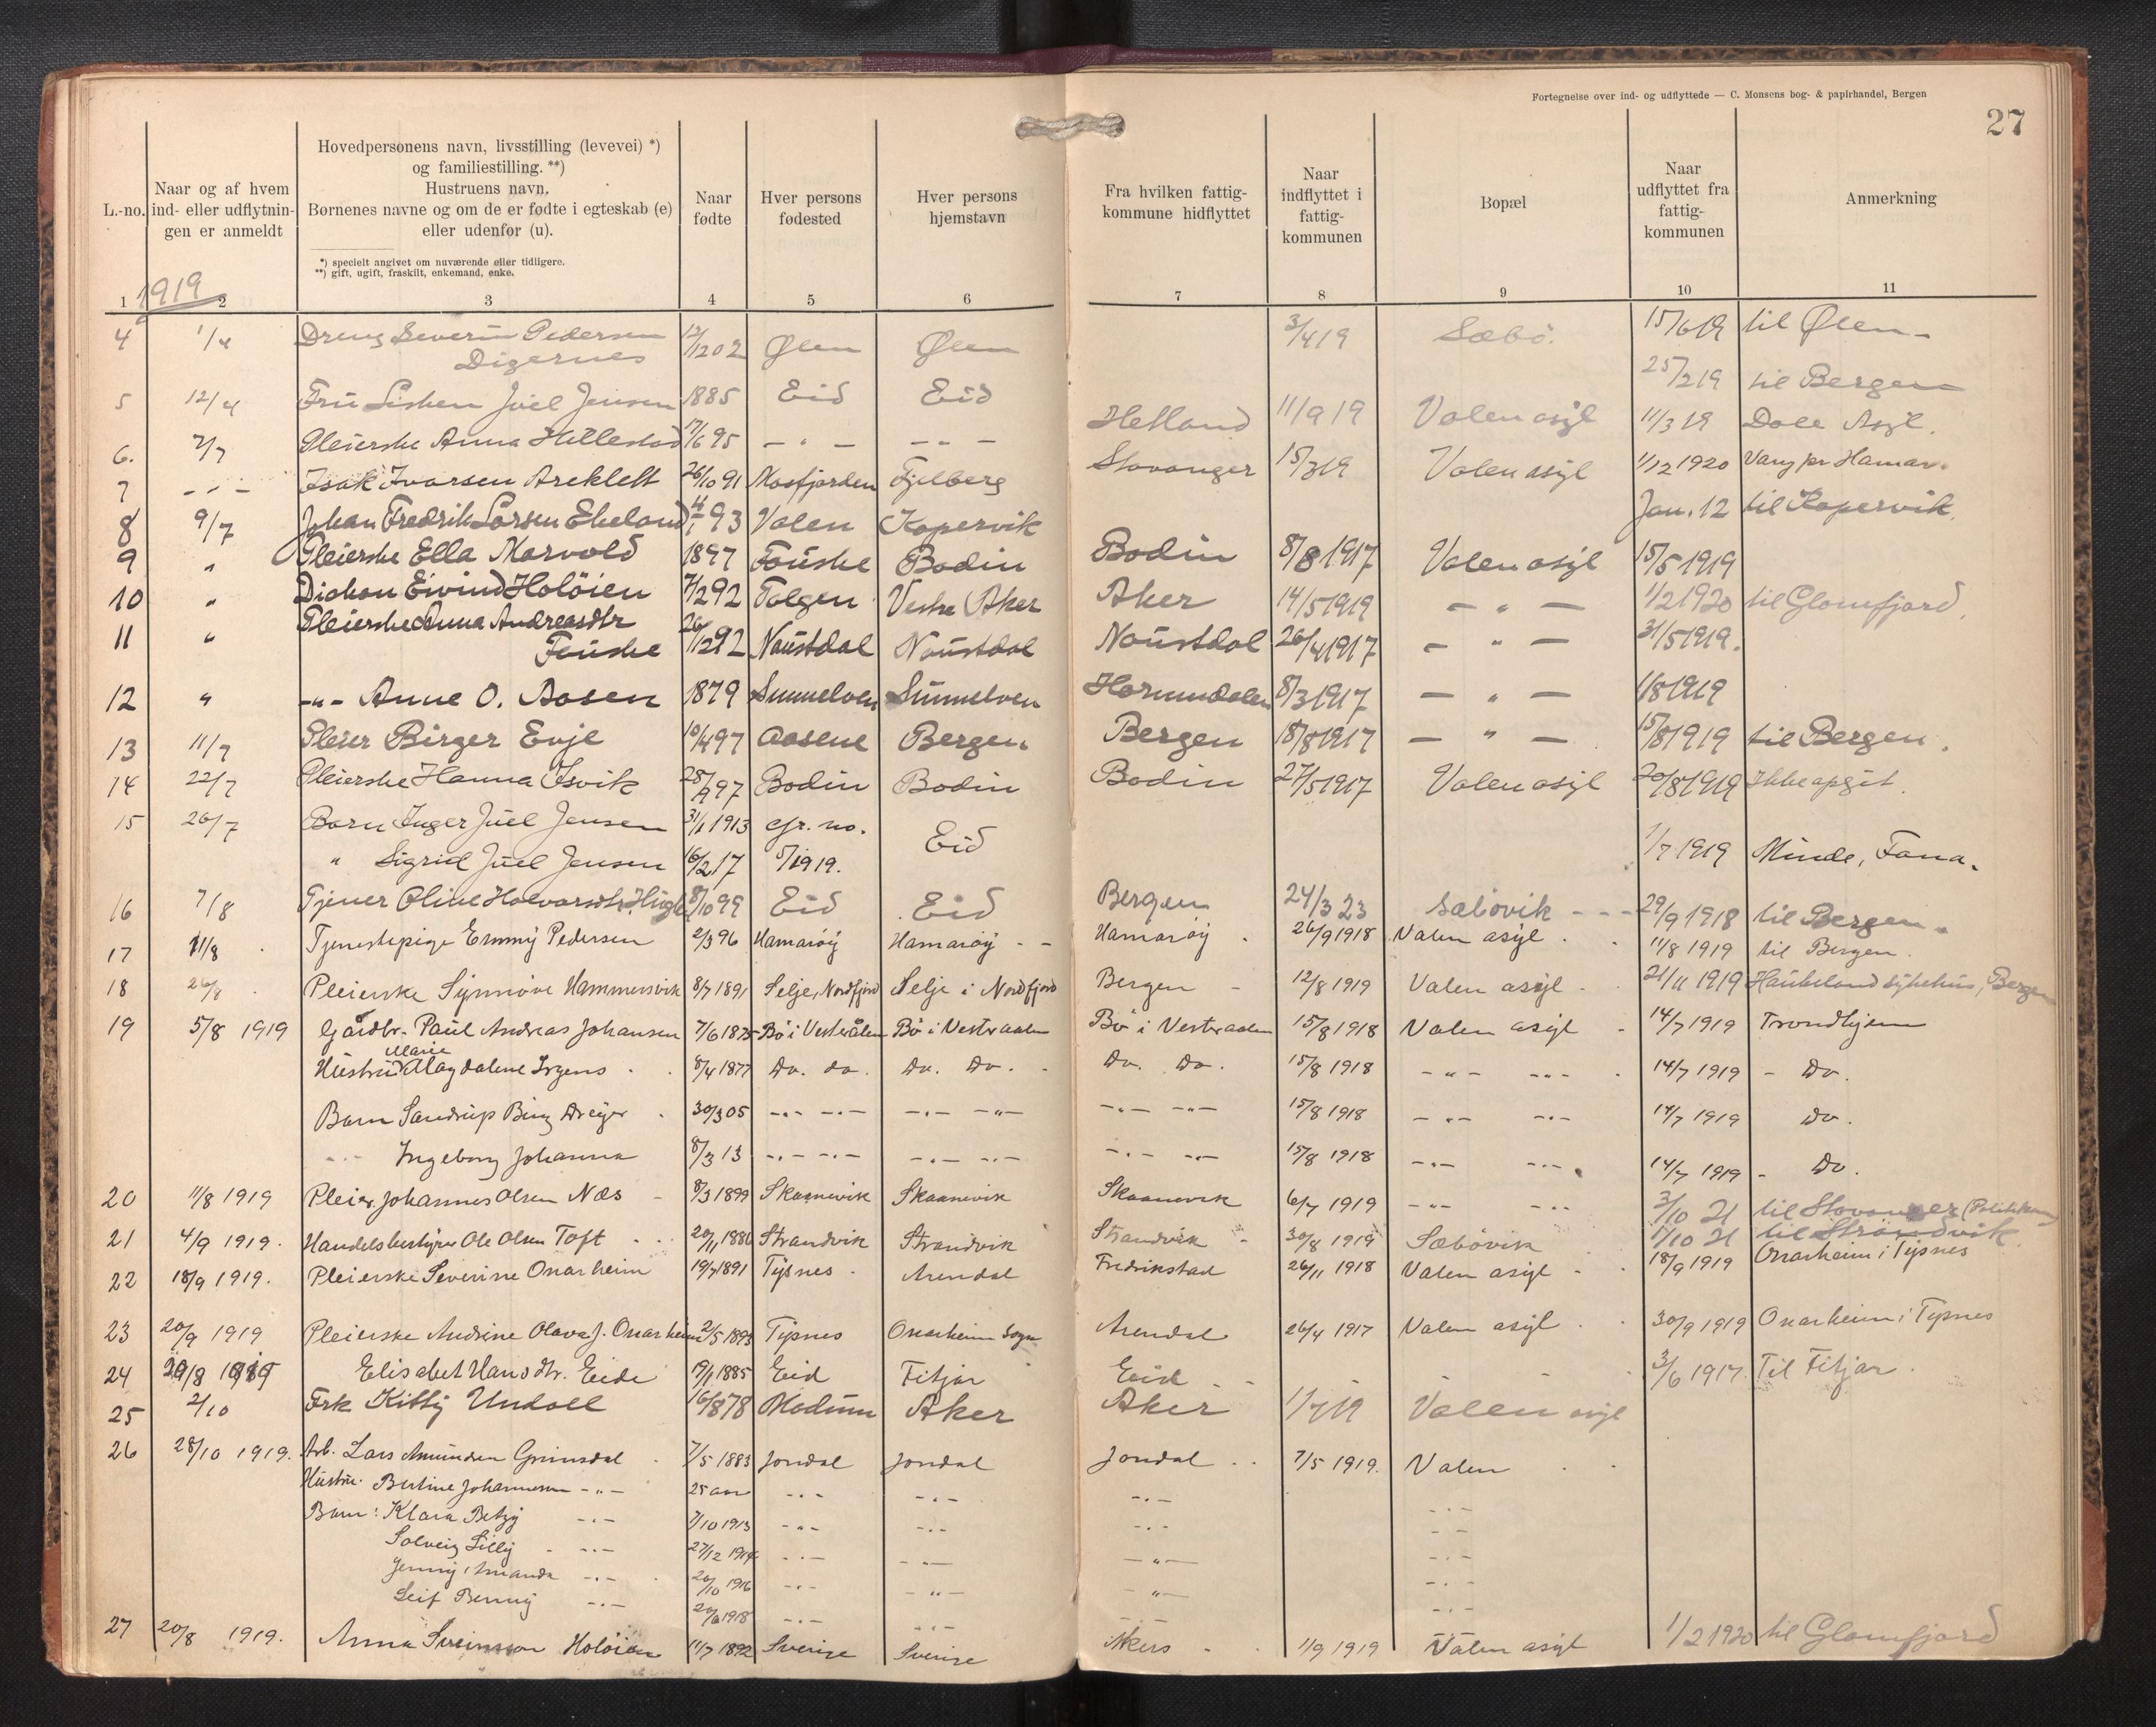 Fortegnelse over ind- og udflyttede — C. Monsens bog- & papirhandel, Bergen
27
L.-no.
Naar og af hvem ind- eller udflytnin-gen er anmeldt
Hovedpersonens navn, livsstilling (levevei) *)
og familiestilling. **)
Hustruens navn.
Børnenes navne og om de er fødte i egteskab (e)
eller udenfor (u).
*) specielt angivet om nuværende eller tidligere.
**) gift, ugift, fraskilt, enkemand, enke.
Naar fødte
Hver persons fødested
Hver persons hjemstavn
Fra hvilken fattig-kommune hidflyttet
Naar indflyttet i fattig-kommunen
Bopæl
Naar udflyttet fra fattig-kommunen
Anmerkning
1 2 3 4 5 6 7 8 9 10 11
1919
4 1/4 Dreng Severin Pedersen 12/12 02 Ølen Ølen 3/4 19 Sæbö. 15/6 19 til Ølen
Digernes
5 12/4 Fru Lisken Juel Jensen 1885 Eid Eid 25/2 19 til Bergen
6. 2/7 Pleierske Anna Hillestad 17/6 95 — " — — " — Hetland 11/9 19 Valen asyl 11/3 19 Dale Asyl.
7 - " - Isak Ivarsen Areklett 26/10 91 Mosfjorden Fjelberg Stavanger 15/3 19 Valen asyl 1/12 1920 Vang pr Hamar.
8 9/7 Johan Fredrik Larsen Ekeland 93 Valen Kopervik Jan. 12 til Kopervik.
9 " Pleierske Ella Marvold 1897 Fauske Bodin Bodin 8/8 1917 Valen asyl 15/5 1919
10 " Diakon Eivind Holöien 7/2 92 Tolgen Vestre Aker Aker 14/5 1919 — " — 1/2 1920 til Glomfjord.
11 " Pleierske Anna Andreasdtr 26/12 92 Naustdal Naustdal Naustdal 26/4 1917 — " — 31/5 1919.
Fauske
12 " -"- Anne O. Aasen 1879 Sunnelven Sunnelven Hornindalen 8/3 1917 — " — 1/8 1919
13 11/7 Pleier Birger Evje 10/4 97 Aasene Bergen. Bergen 18/8 1917 — " — 15/8 1919 til Bergen.
14 22/7 Pleierske Hanna Isvik 28/9 97 Bodin Bodin Bodin 27/5 1917 Valen asyl 20/8 1919 Ikke opgit.
15 26/7 Barn Inger Juel Jensen 31/1 1913 cfr. no. Eid
" Sigrid Juel Jensen 16/2 17 5/1919. 1/7 1919 Minde, Fana.
16 7/8 Tjener Oline Halvorsdtr. 8/10 99 Eid Eid Bergen 24/3 23 Sæbövik 29/9 1918 til Bergen.
17 11/8 Tjenestepige Emmy Pedersen 2/3 96 Hamaröy Hamaröy Hamaröy 26/9 1918 Valen asyl 11/8 1919 til Bergen.
18 26/8 Pleierske Synnöve Hammersvik 8/7 1891 Selje, Nordfjord Selje i Nordfjord Bergen 12/8 1919 Valen asyl 21/11 1919 Haukeland sykehus, Bergen
19 5/8 1919 Gårdbr. Paul Andreas Johansen 7/6 1875 Bö i Vesterålen Bö i Vesteraalen Bö i Vesteraalen 15/8 1918 Valen asyl 14/7 1919 Trondhjem
Marie
Hustru Magdalene Irgens 8/4 1877 Do. do. Do. Do. Do. Do. 15/8 1918 -"- -"- 14/7 1919 - Do.
Barn Sandrup Bing Dreyer 30/3 05 -"- -"- -"- -"- -"- -"- 15/8 1918 -"- -"- 14/7 1919 Do.
-"- Ingeborg Johanna 8/3 13 -"- -"- -"- -"- -"- -"- 15/8 1918 -"- -"- 14/7 1919 - Do.
20 11/8 1919 Pleier Johannes Olsen Næs 8/3 1899 Skaanevik Skaanevik Skaanevik 6/7 1919 -"- -"- 3/10 21 til Stavanger
21 4/9 1919. Handelsbestyrer Ole Olsen Toft 20/11 1886 Strandvik Strandvik Strandvik 30/8 1919 Sæbövik 1/10 21 til Strandvik
22 18/9 1919. Pleierske Severine Onarheim 19/7 1891 Tysnes Arendal Fredrikstad 26/11 1918 Valen asyl 18/9 1919 Onarheim i Tysnes
23 20/9 1919 Pleierske Andrine Olava J. Onarheim 2/5 1893 Tysnes Onarheim Sogn Arendal 26/4 1917 Valen asyl 30/9 1919 Onarheim i Tysnes
24 Elisabet Hansdtr. Eide 19/1 1885 Eid Fitjar Eid 3/6 1917 Til Fitjar.
25 2/10 Frk Kitty Undall 16/8 78 Modum Aker Aker 1/7 19 Valen asyl
26 28/10 1919. Arb. Lars Amundsen Grimsdal 7/5 1883 Jondal Jondal Jondal 7/5 1919. Valen
Hustru. Bertine Johannesen -"- 25 aar -"- -"- -"- -"-
Barn: Klara Betzy -"- 7/10 1913 -"- -"- -"- -"-
Solveig Lilly -"- 27/12 1914 -"- -"- -"- -"-
Jenny Amanda -"- 20/10 1916 -"- -"- -"- -"-
Leif Benny -"- 20/6 1918 -"- -"- -"- -"-
27 20/8 1919. Anna Sveinsson Holöien 11/7 1892 Sverige Sverige Akers 1/9 1919 Valen asyl 1/2 1920 til Glomfjord